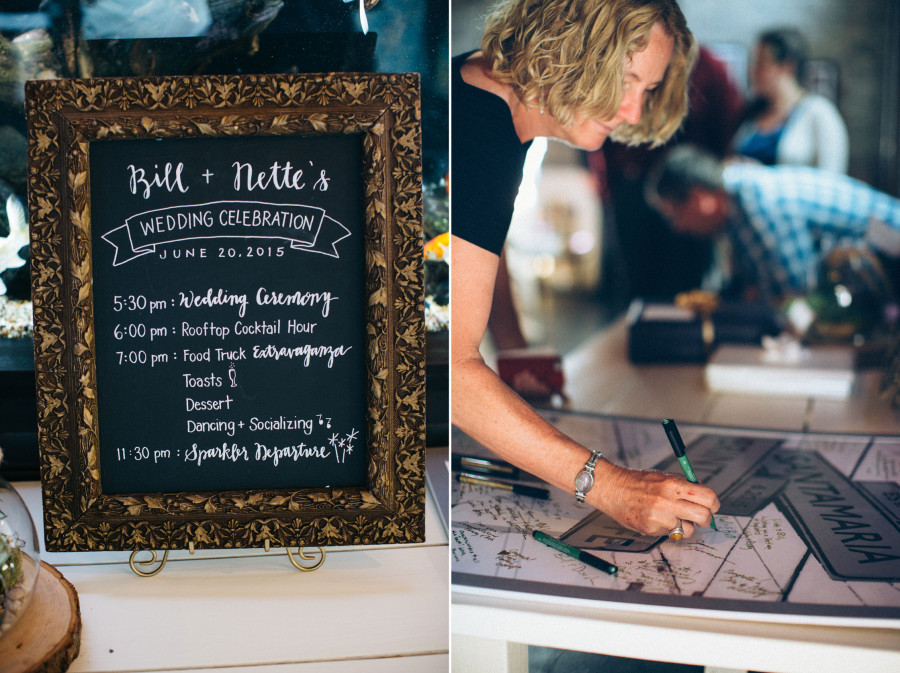 Bill + Nette's
WEDDING CELEBRATION
JUNE 20, 2015
5:30 pm : Wedding Ceremony
6:00 pm : Rooftop Cocktail Hour
7:00 pm : Food Truck Extravaganza
Toasts
Dessert
Dancing + Socializing
11:30 pm : Sparkler Departure
ANTAMARIA